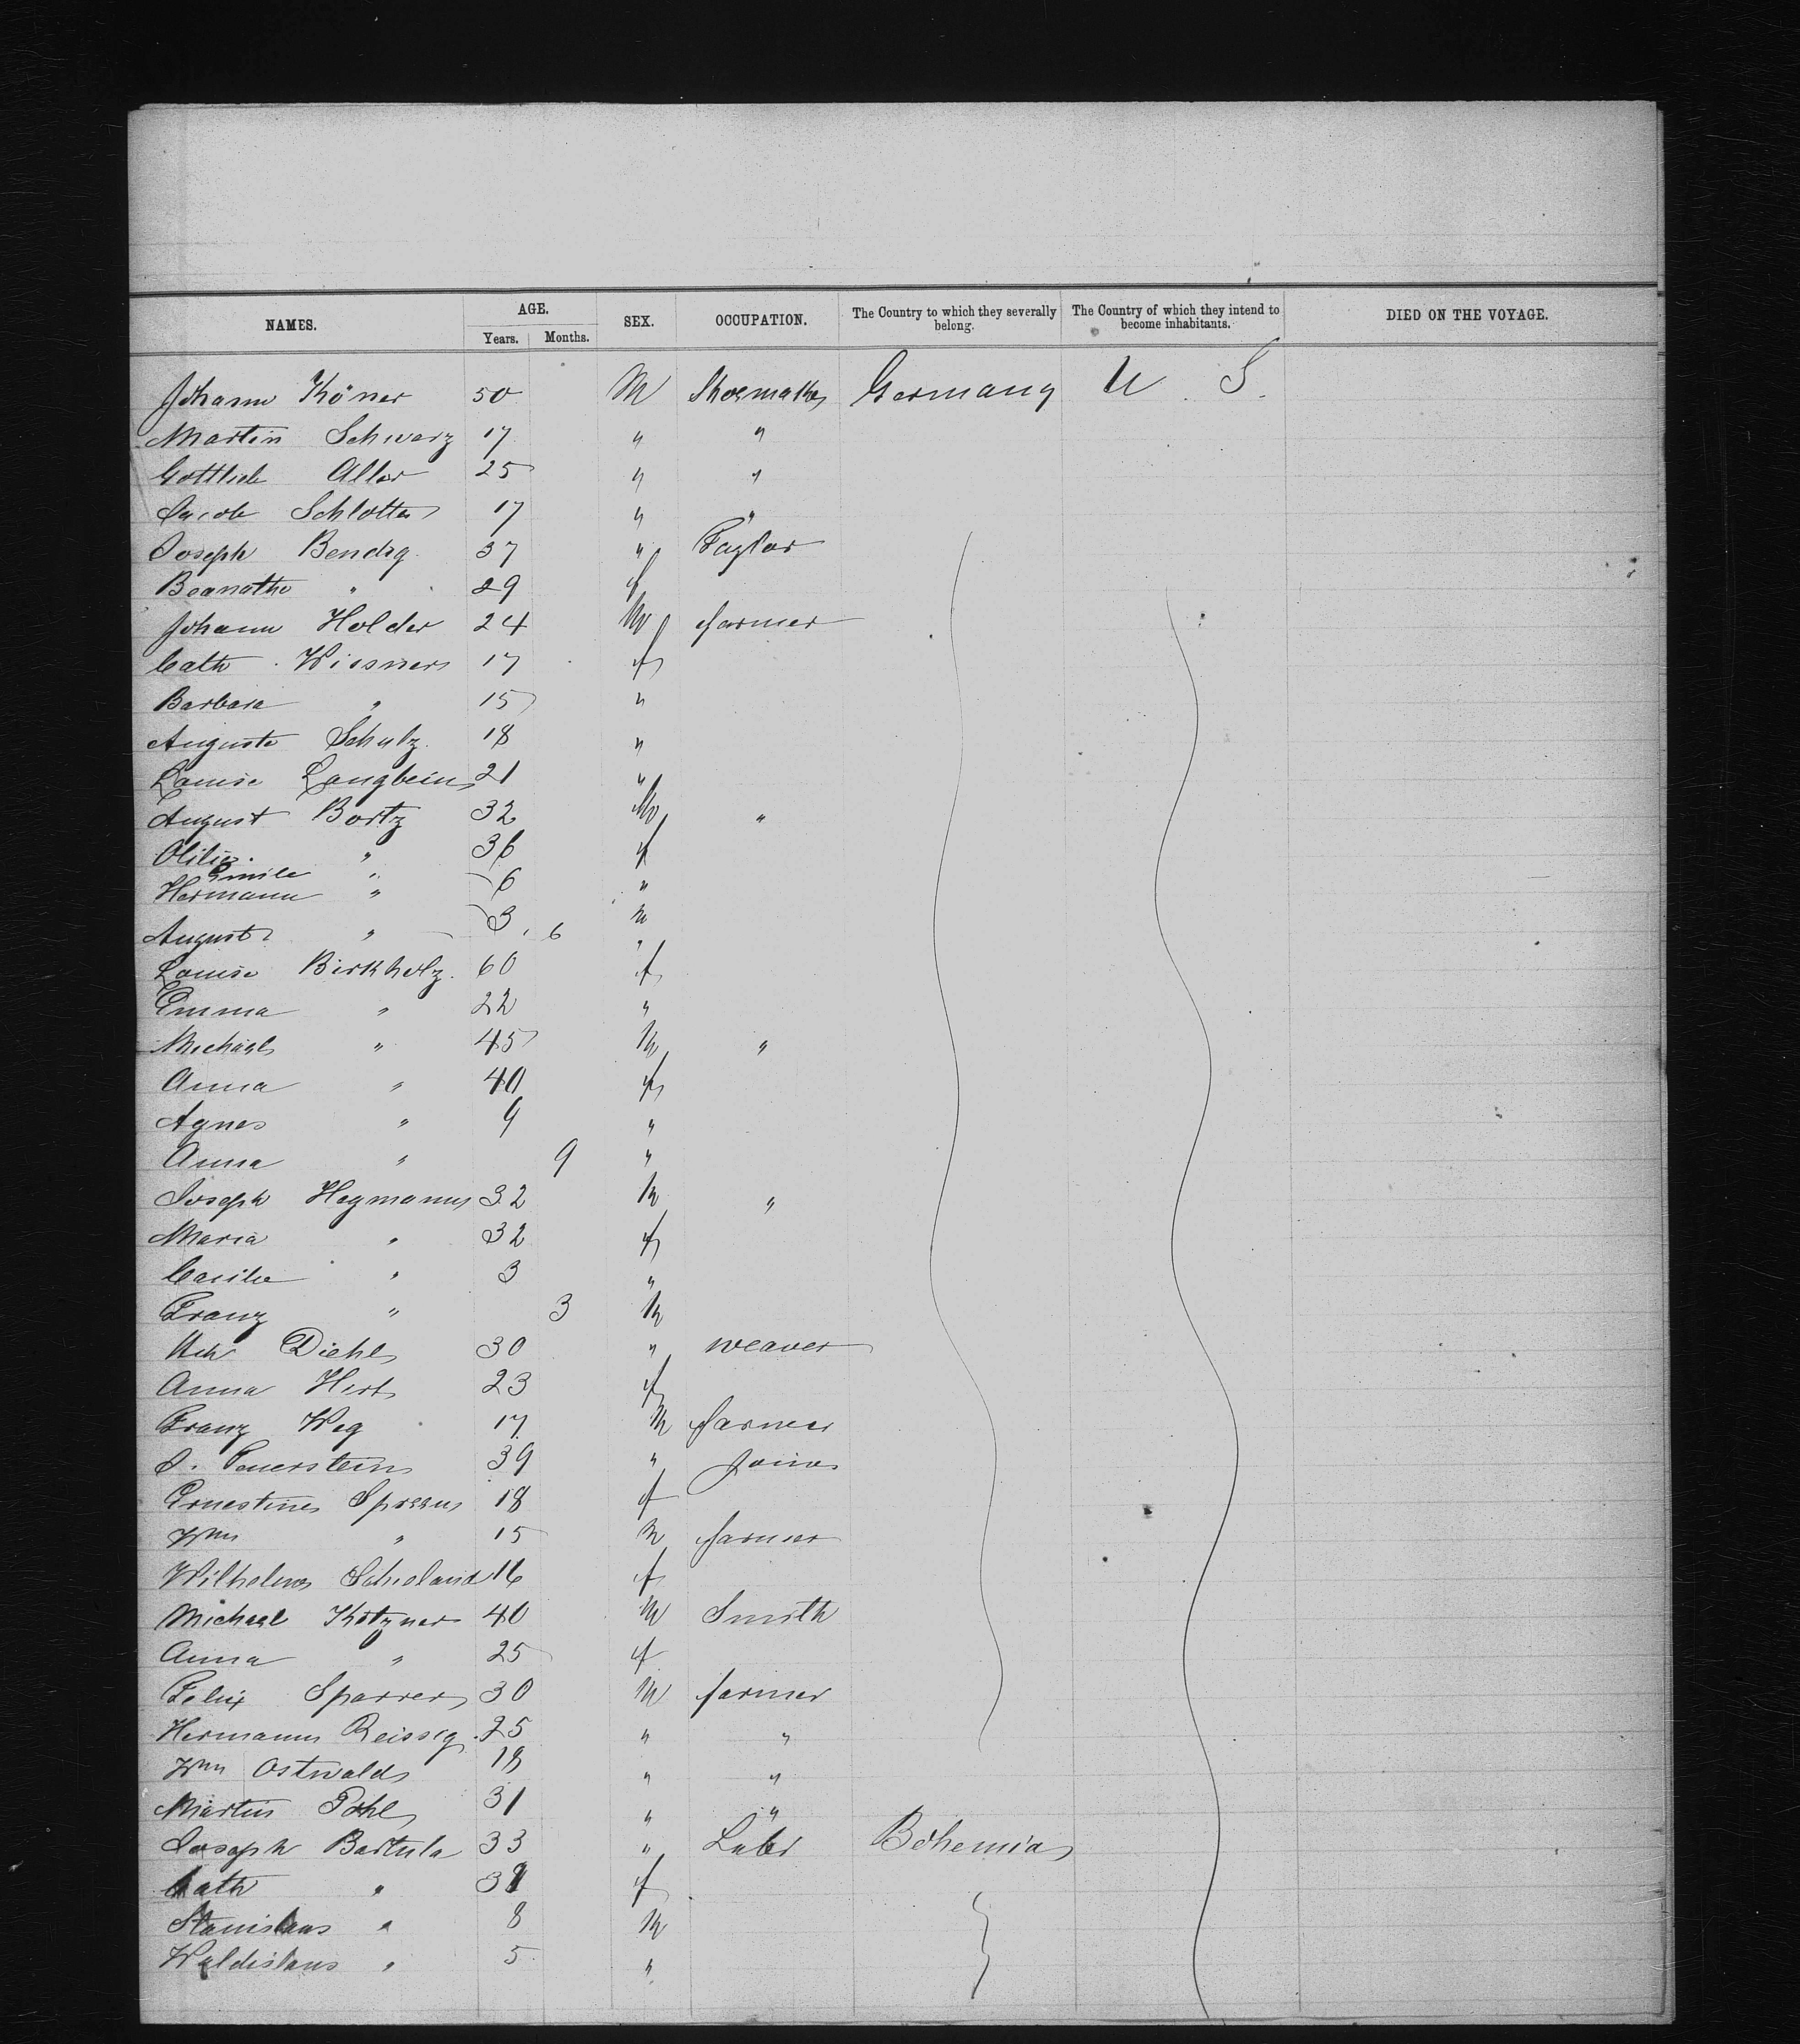 NAMES. AGE. SEX. OCCUPATION. The Country to which they severally belong. The Country of which they intend to become inhabitants. DIED ON THE VOYAGE.
Years. Months.
Johann Köner 50 M Shoemaker Germany U. S.
Martin Schwarz 17 " "
Gottlieb Aller 25 " "
Jacob Schlotter 17 " "
Joseph Bendig 37 " Taylor
" 29 f
Johann Holder 24 M farmer
Cath Wiesner 17 f
Barbara " 15 "
Auguste Schulz 18 "
Louise Langbein 21 "
August Bortz 32 M "
Otilie " 36 f
Emile " 6 "
Hermann " 3 M
August " , 6 "
Louise Birkholz 60 f
Emma " 22 "
Michael " 45 M "
Anna " 40 f
Agnes " 9 "
Anna " 9 "
Joseph Heymann 32 M "
Maria " 32 f
" 3 "
Franz " 3 M
Diehl 30 " weaver
Anna Hert 23 f
Franz Weg 17 M farmer
J. Feuerstein 39 " Joiner
Ernestine 18 f
Wm " 15 M farmer
Wilhelm Schieland 16 f
Michael Kotzner 40 M Smith
Anna " 25 f
Felix Sparrer 30 M farmer
Hermann Reissig 25 " "
Wm Ostwald 18 " "
Martin Pohl 31 " "
Joseph Bartula 33 " Labr Bohemia
Cath " 31 f
Stanislaus " 8 M
Waldislaus " 5 "